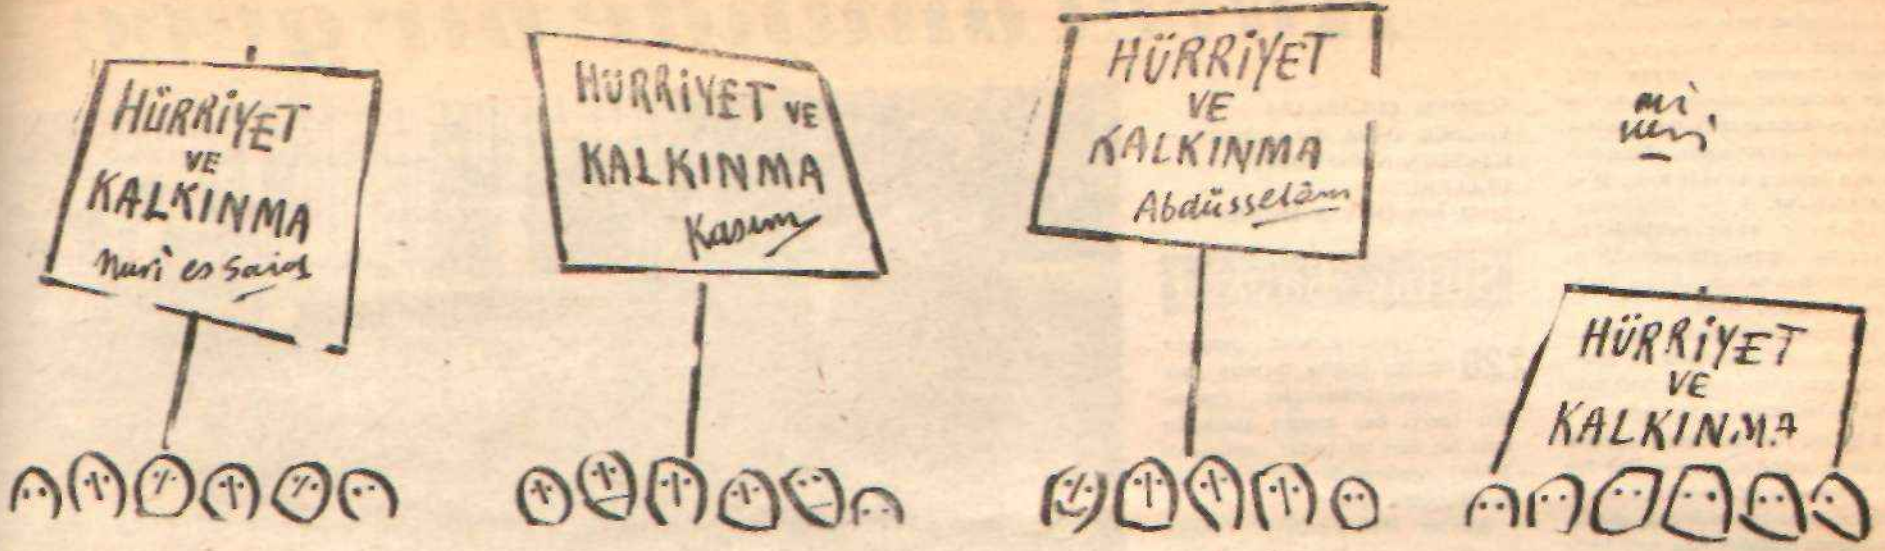 HÜRRİYET
VE
KALKINMA
Nuri es Said
HÜRRİYET VE
KALKINMA
Kasım
HÜRRİYET
VE
KALKINMA
Abdüsselâm
HÜRRİYET
VE
KALKINMA